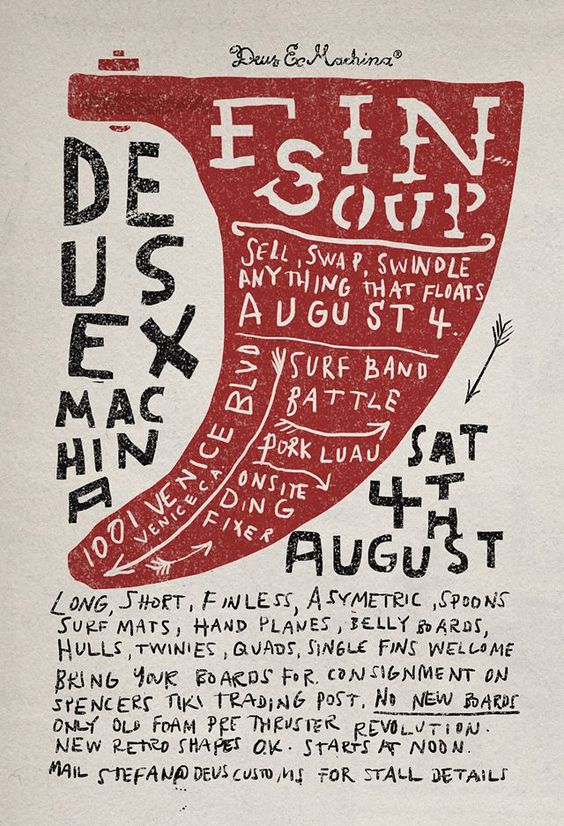 Deus Ex Machina®
FIN
SOUP
SELL, SWAP, SWINDLE
ANYTHING THAT FLOATS
AUGUST 4.
SURF BAND
BATTLE
PORK LUAU
ONSITE
DING
FIXER
1001 VENICE BLVD
VENICE CA.
DE
US
EX
MAC
HIN
A
SAT
4TH
AUGUST
LONG, SHORT, FINLESS, ASYMETRIC, SPOONS
SURF MATS, HAND PLANES, BELLY BOARDS,
HULLS, TWINIES, QUADS, SINGLE FINS WELCOME
BRING YOUR BOARDS FOR CONSIGNMENT ON
SPENCERS TIKI TRADING POST. NO NEW BOARDS
ONLY OLD FOAM PRE THRUSTER REVOLUTION.
NEW RETRO SHAPES OK. STARTS AT NOON.
MAIL STEFAN@DEUSCUSTOMS FOR STALL DETAILS